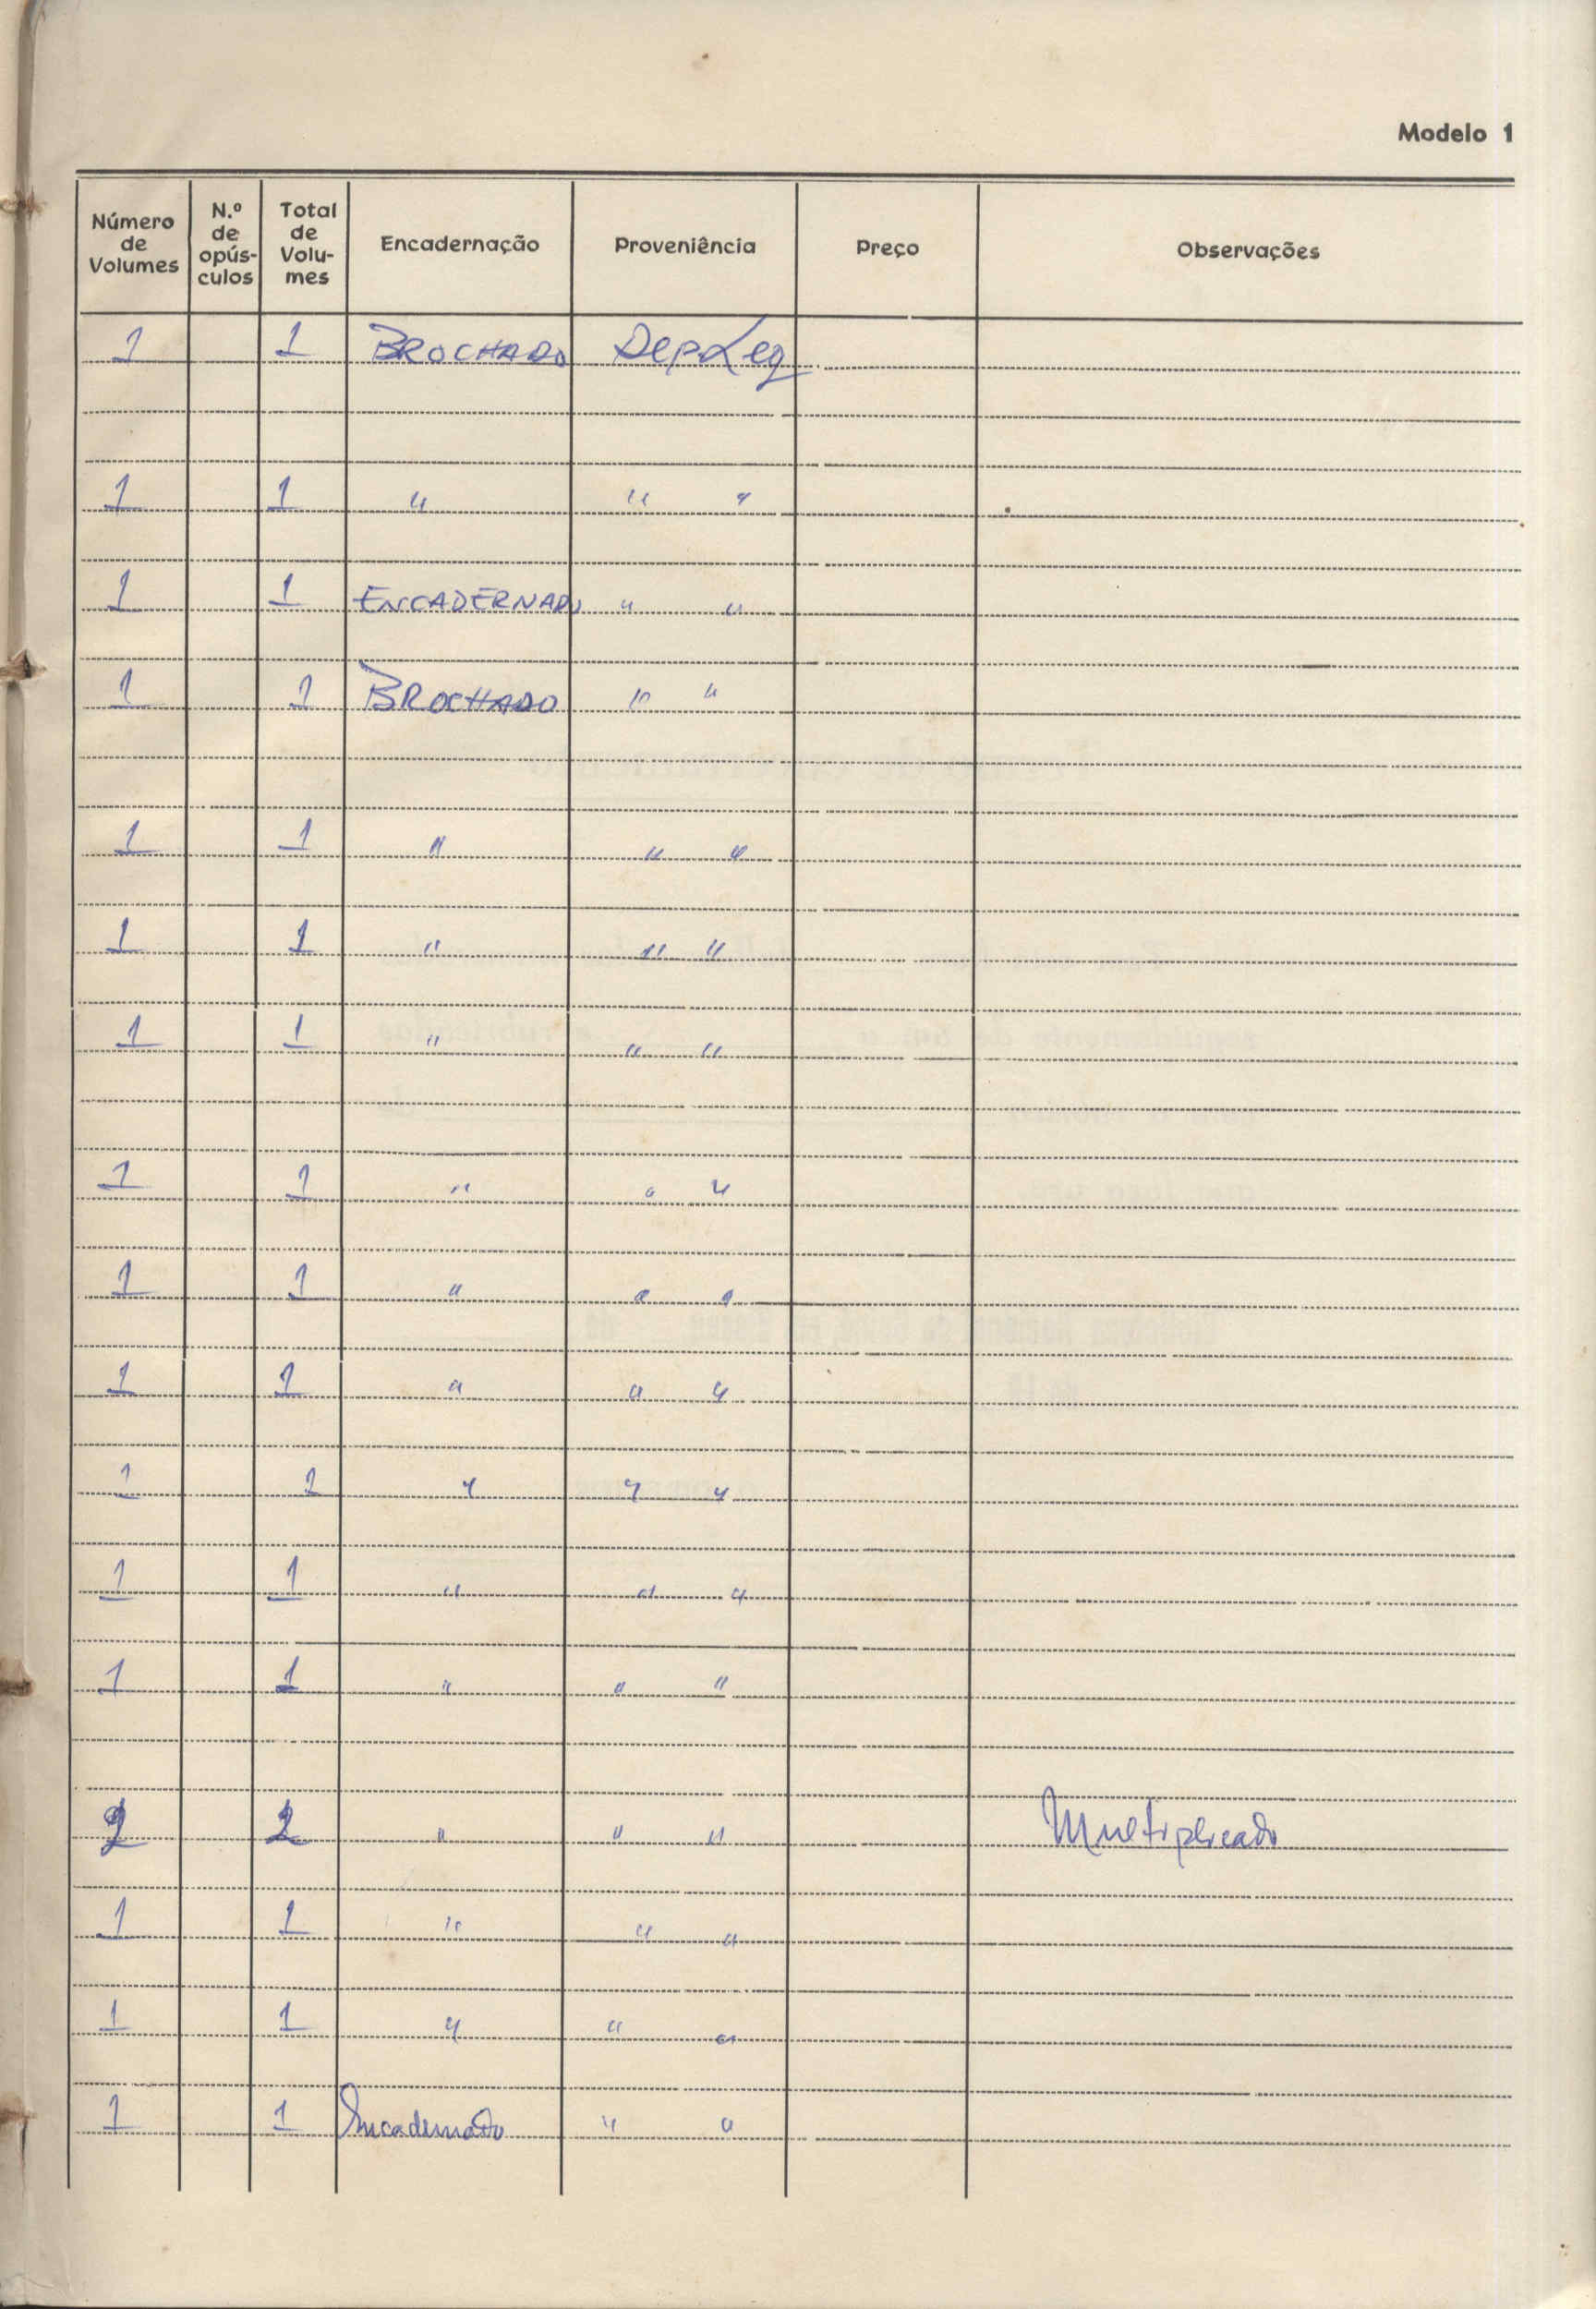 Modelo 1
Número de Volumes N.º de opús-culos Total de Volu-mes Encadernação Proveniência Preço Observações
1 1 BROCHADO Dep Leg
1 1 " " "
1 1 ENCADERNADO " "
1 1 BROCHADO " "
1 1 " " "
1 1 " " "
1 1 " " "
1 1 " " "
1 1 " " "
1 1 " " "
1 1 " " "
1 1 " " "
1 1 " " "
2 2 " " " Multiplicado
1 1 " " "
1 1 " " "
1 1 Encadernado " "